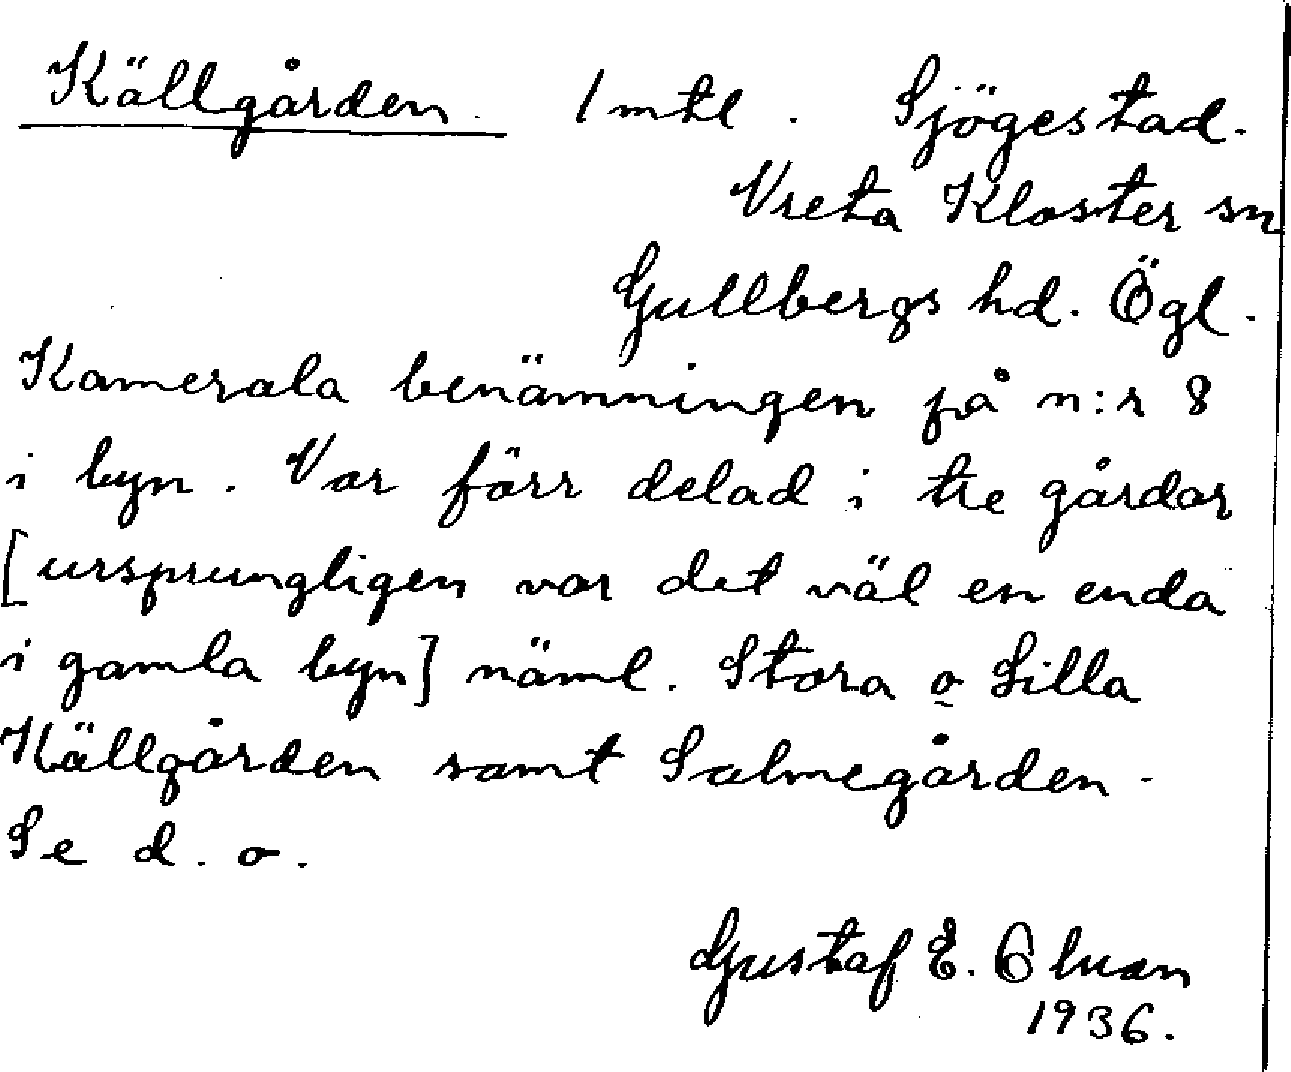 Källgården. 1 mtl. Sjögestad.
Vreta Kloster sn
Gullbergs hd. Ögl.
Kamerala benämningen på n:r 8
i byn. Var förr delad i tre gårdar
[ursprungligen var det väl en enda
i gamla byn] näml. Stora o Lilla
Källgården samt Salmegården.
Se d. o.
Gustaf E.
1936.